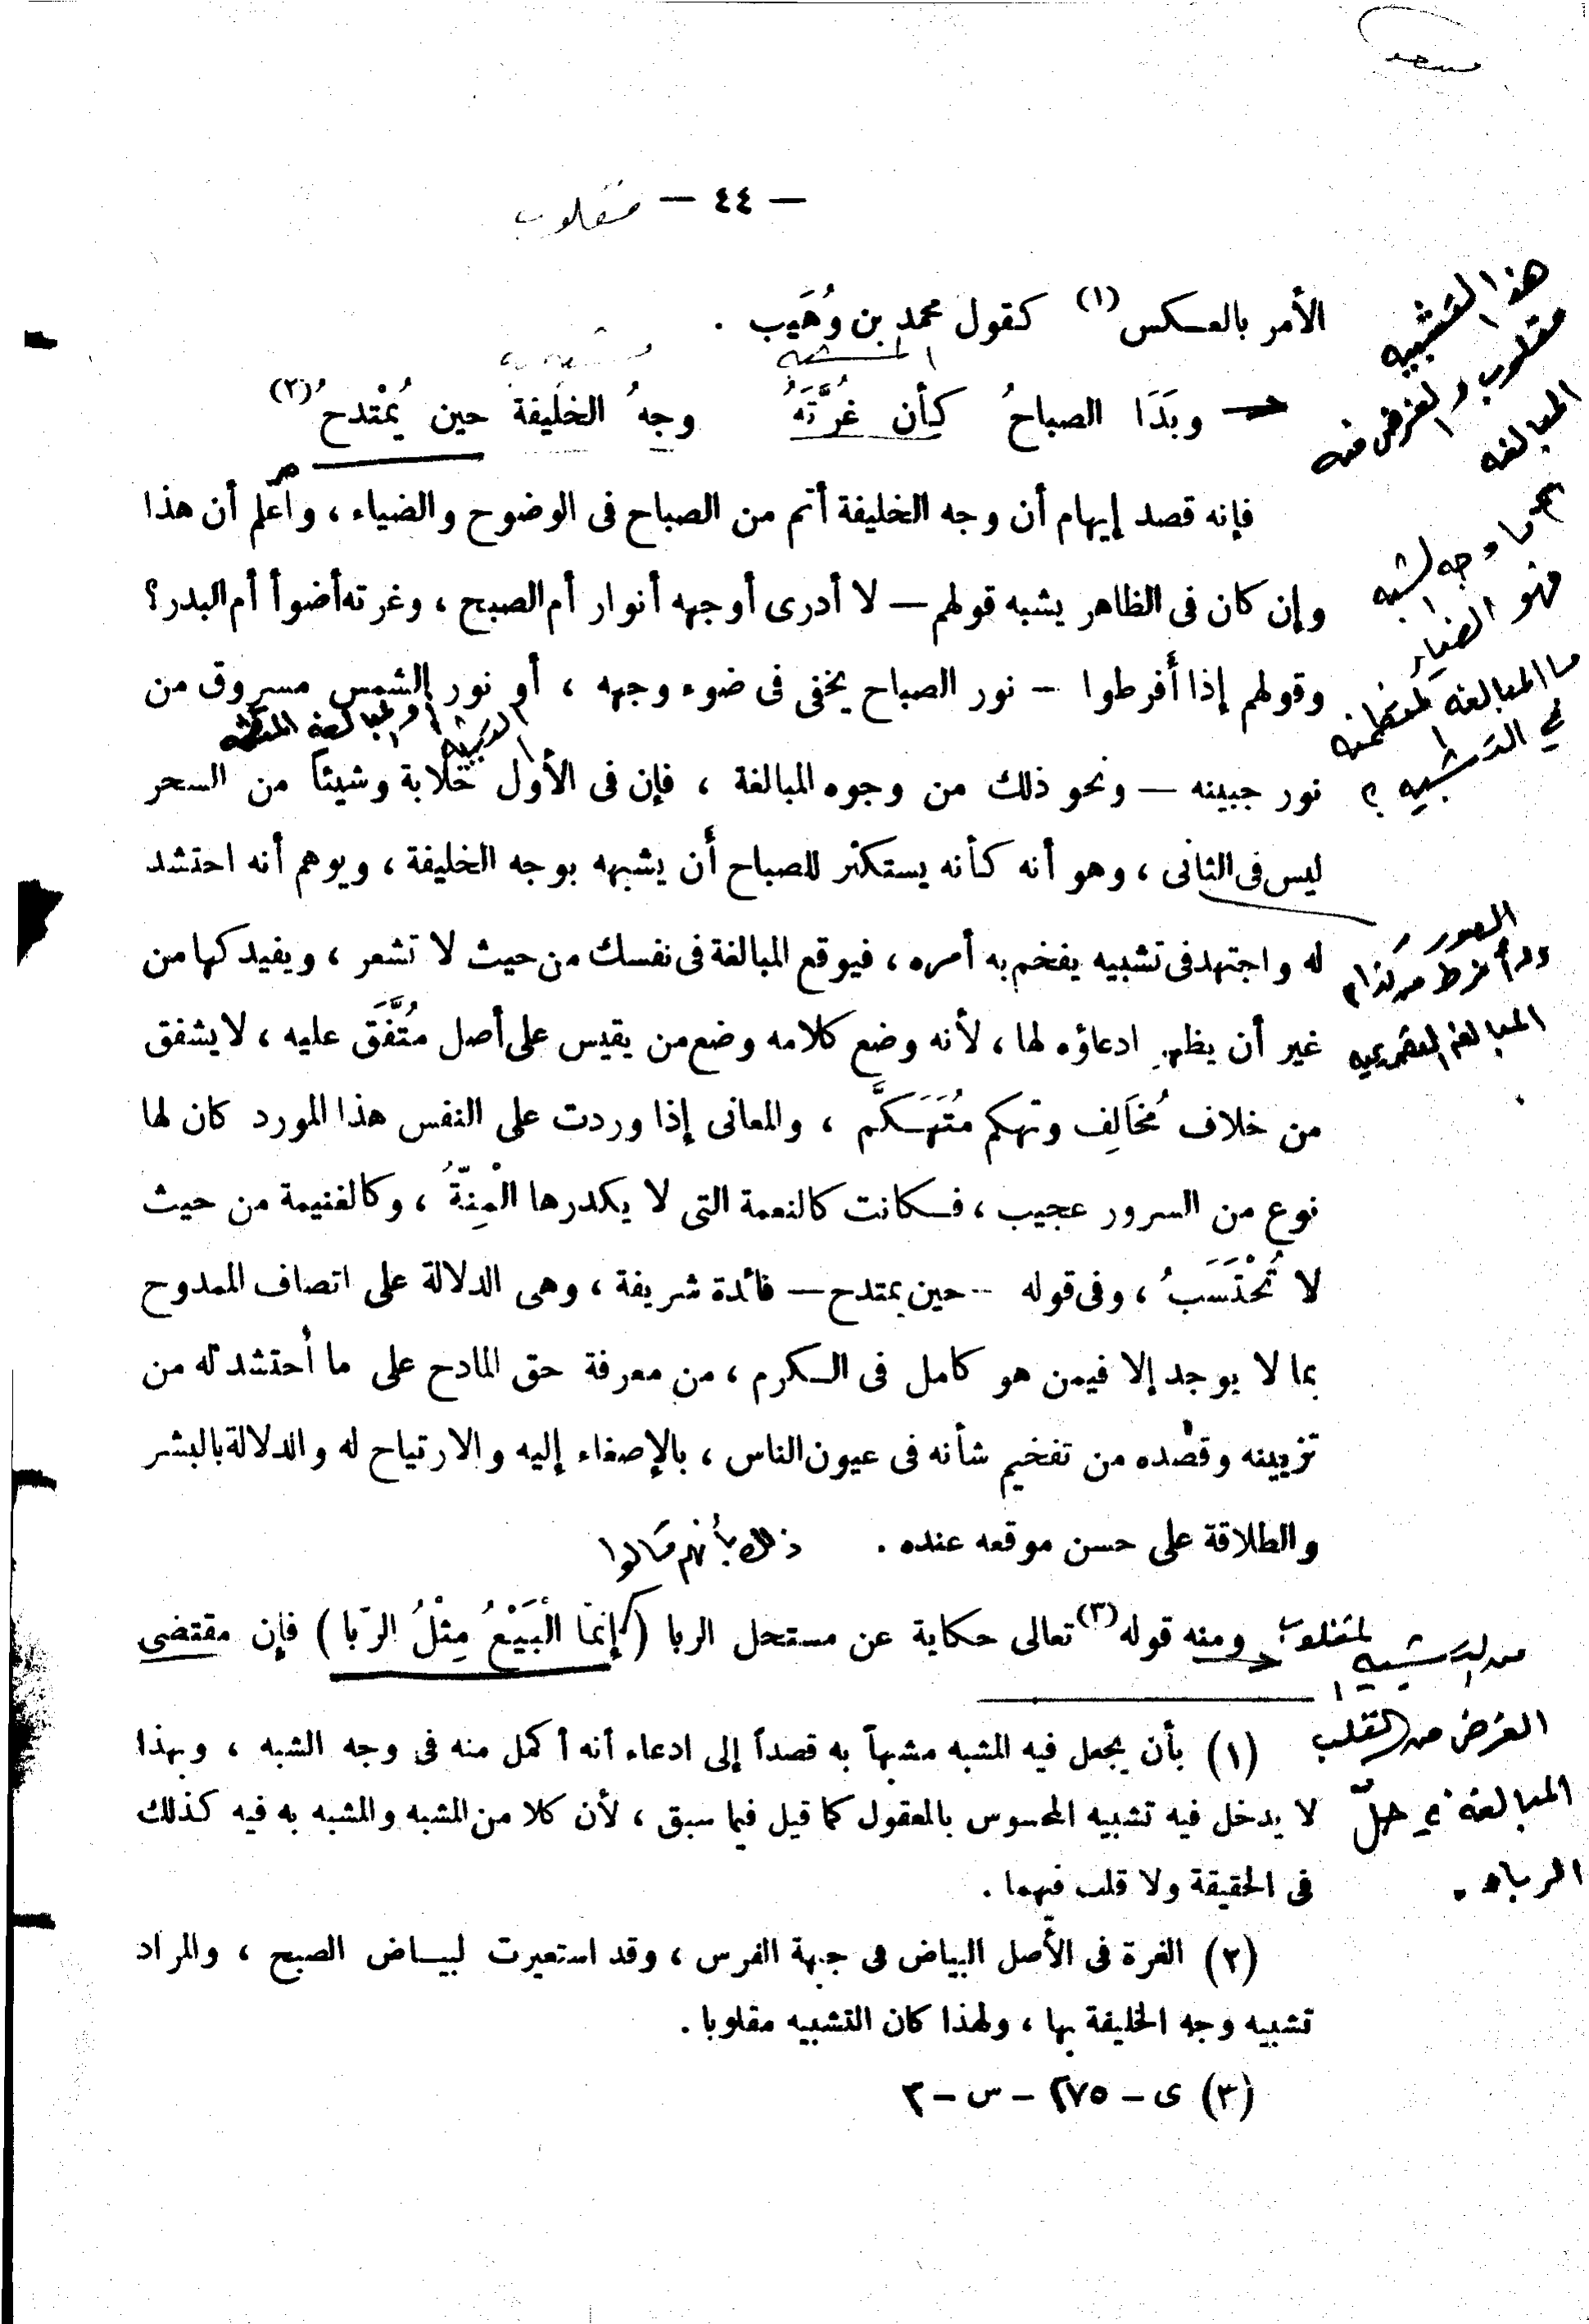 — ٤٤ — مقلوب
الأمر بالعكس (١) كقول محمد بن وُهَيب .
المشبه
وبَدَا الصباحُ كأن غُرَّتَهُ وجهُ الخليفة حين يُمْتدحُ (٢)
فإنه قصد إيهام أن وجه الخليفة أتم من الصباح فى الوضوح والضياء ، واعلم أن هذا
وإن كان فى الظاهر يشبه قولهم — لا أدرى أوجهه أنوار أم الصبح ، وغرته أضوأ أم البدر ؟
وقولهم إذا أفرطوا — نور الصباح يخفى فى ضوء وجهه ، أو نور الشمس مسروق من
نور جبينه — ونحو ذلك من وجوه المبالغة ، فإن فى الأول خلابة وشيئاً من السحر
ليس فى الثانى ، وهو أنه كأنه يستكثر للصباح أن يشبهه بوجه الخليفة ، ويوهم أنه احتشد
له واجتهد فى تشبيه يفخم به أمره ، فيوقع المبالغة فى نفسك من حيث لا تشعر ، ويفيدكها من
غير أن يظهر ادعاؤه لها ، لأنه وضع كلامه وضع من يقيس على أصل مُتَّفَق عليه ، لا يشفق
من خلاف مُخَالِف وتهكم مُتَهَكِّم ، والمعانى إذا وردت على النفس هذا المورد كان لها
نوع من السرور عجيب ، فكانت كالنعمة التى لا يكدرها الْمِنَّةُ ، وكالغنيمة من حيث
لا تُحْتَسَبُ ، وفى قوله — حين يمتدح — فائدة شريفة ، وهى الدلالة على اتصاف الممدوح
بما لا يوجد إلا فيمن هو كامل فى الكرم ، من معرفة حق المادح على ما أحتشد له من
تزيينه وقصده من تفخيم شأنه فى عيون الناس ، بالإصغاء إليه والارتياح له والدلالة بالبشر
والطلاقة على حسن موقعه عنده . ذلك بأنهم قالوا
ومنه قوله (٣) تعالى حكاية عن مستحل الربا ( إِنَّمَا الْبَيْعُ مِثْلُ الرِّبا ) فإن مقتضى
(١) بأن يجعل فيه المشبه مشبهاً به قصداً إلى ادعاء أنه أكمل منه فى وجه الشبه ، وبهذا
لا يدخل فيه تشبيه المحسوس بالمعقول كما قيل فيما سبق ، لأن كلا من المشبه والمشبه به فيه كذلك
فى الحقيقة ولا قلب فيهما .
(٢) الغرة فى الأصل البياض فى جبهة الفرس ، وقد استعيرت لبياض الصبح ، والمراد
تشبيه وجه الخليفة بها ، ولهذا كان التشبيه مقلوبا .
(٣) ى — ٢٧٥ — س — ٢
هذا التشبيه
مقلوب والغرض منه
المبالغة
وجه الشبه
فهو الضياء
ما المبالغة المتضمنة
في التشبيه ؟
الصور
المبالغة
من التشبيه المقلوب
الغرض من القلب
المبالغة في حلّ
الربا .